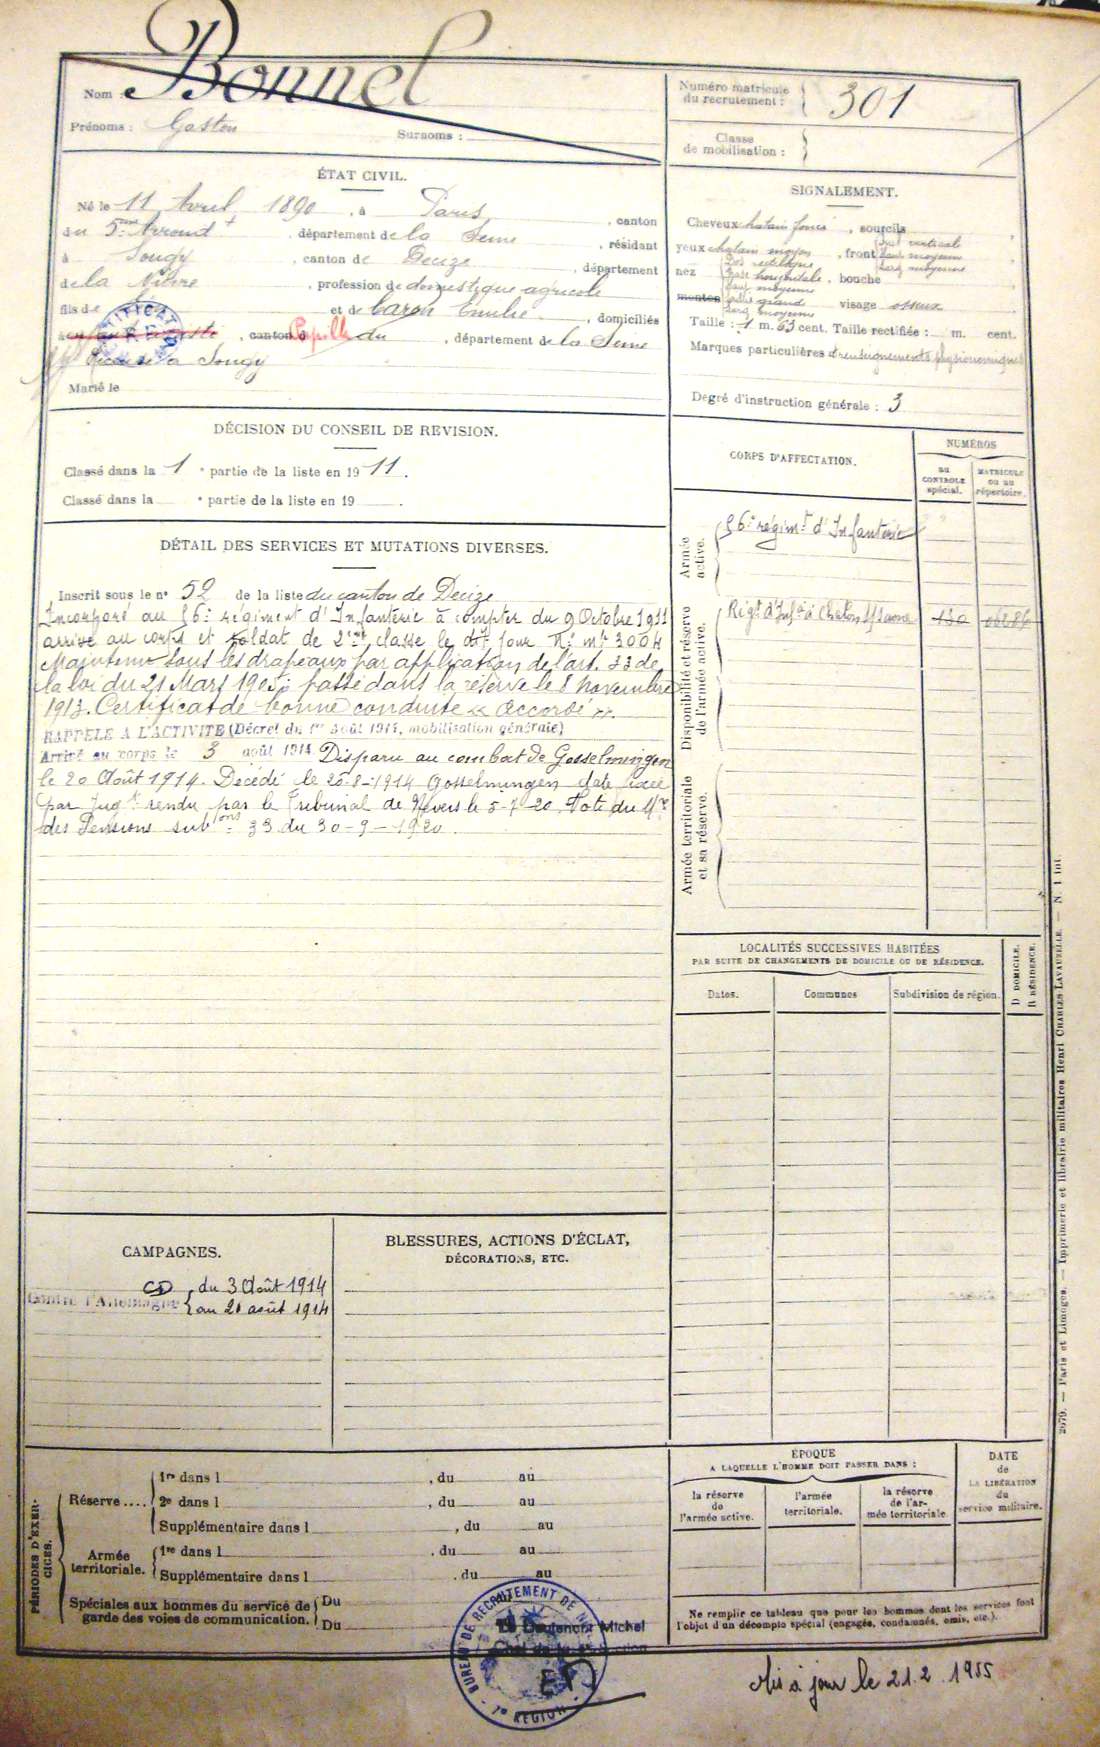 Nom : Bonnel
Prénoms : Gaston Surnoms :
Numéro matricule du recrutement : 301
Classe de mobilisation :
ÉTAT CIVIL.
Né le 11 Avril 1890, à Paris, canton
du 5ème Arrondt, département de la Seine, résidant
à Sougy, canton de Decize, département
de la Nièvre, profession de domestique agricole
fils de et de Caron Emilie, domiciliés
à canton Pupille du, département de la Seine
à Sougy
Marié le
SIGNALEMENT.
Cheveux chatain foncé, sourcils
yeux chatain moyen, front Incl verticale
haut moyenne
larg moyenne
nez Dos rectiligne
Base horizontale, bouche
haut moyenne
menton saillie grand visage osseux
larg moyenne
Taille : 1 m. 63 cent. Taille rectifiée : m. cent.
Marques particulières et renseignements physionomiques
Degré d'instruction générale : 3
DÉCISION DU CONSEIL DE REVISION.
Classé dans la 1e partie de la liste en 1911.
Classé dans la e partie de la liste en 19 .
DÉTAIL DES SERVICES ET MUTATIONS DIVERSES.
Inscrit sous le n° 52 de la liste du canton de Decize
Incorporé au 56e régiment d'Infanterie à compter du 9 Octobre 1911
arrivé au corps et soldat de 2e classe le dit jour N° mle 3004
Maintenu sous les drapeaux par application de l'art. 33 de
la loi du 21 Mars 1905; passé dans la réserve le 8 novembre
1913. Certificat de bonne conduite « Accordé ».
RAPPELÉ A L'ACTIVITÉ (Décret du 1er août 1914, mobilisation générale)
Arrivé au corps le 3 août 1914. Disparu au combat de Gosselmingen
le 20 Août 1914. Décédé le 20-8-1914 Gosselmingen date fixée
par Jugt rendu par le Tribunal de Nevers le 5-7-20. Note du Mre
des Pensions subons 33 du 30-9-1920.
CORPS D'AFFECTATION.
NUMÉROS
AU CONTROLE spécial.
MATRICULE ou au répertoire.
Armée active.
56e régimt d'Infanterie
Disponibilité et réserve de l'armée active.
Régt d'Infie à Chalon s/Saone 130
Armée territoriale et sa réserve.
LOCALITÉS SUCCESSIVES HABITÉES
PAR SUITE DE CHANGEMENTS DE DOMICILE OU DE RÉSIDENCE.
Dates. Communes Subdivision de région. D DOMICILE. R RÉSIDENCE.
CAMPAGNES.
CD du 3 Août 1914
Contre l'Allemagne au 21 août 1914
BLESSURES, ACTIONS D'ÉCLAT,
DÉCORATIONS, ETC.
PÉRIODES D'EXERCICES.
Réserve .... 1re dans l , du au
2e dans l , du au
Supplémentaire dans l , du au
Armée territoriale. 1re dans l , du au
Supplémentaire dans l , du au
Spéciales aux hommes du service de Du
garde des voies de communication. Du
ÉPOQUE
A LAQUELLE L'HOMME DOIT PASSER DANS :
la réserve de l'armée active.
l'armée territoriale.
la réserve de l'armée territoriale
DATE de LA LIBÉRATION du service militaire.
Ne remplir ce tableau que pour les hommes dont les services font
l'objet d'un décompte spécial (engagés, condamnés, omis, etc.).
BUREAU DE RECRUTEMENT DE
7e RÉGION
Le Lieutenant Michel
Mis à jour le 21.2.1955
2679. — Paris et Limoges. — Imprimerie et librairie militaires Henri CHARLES LAVAUZELLE. — N. 1 int.